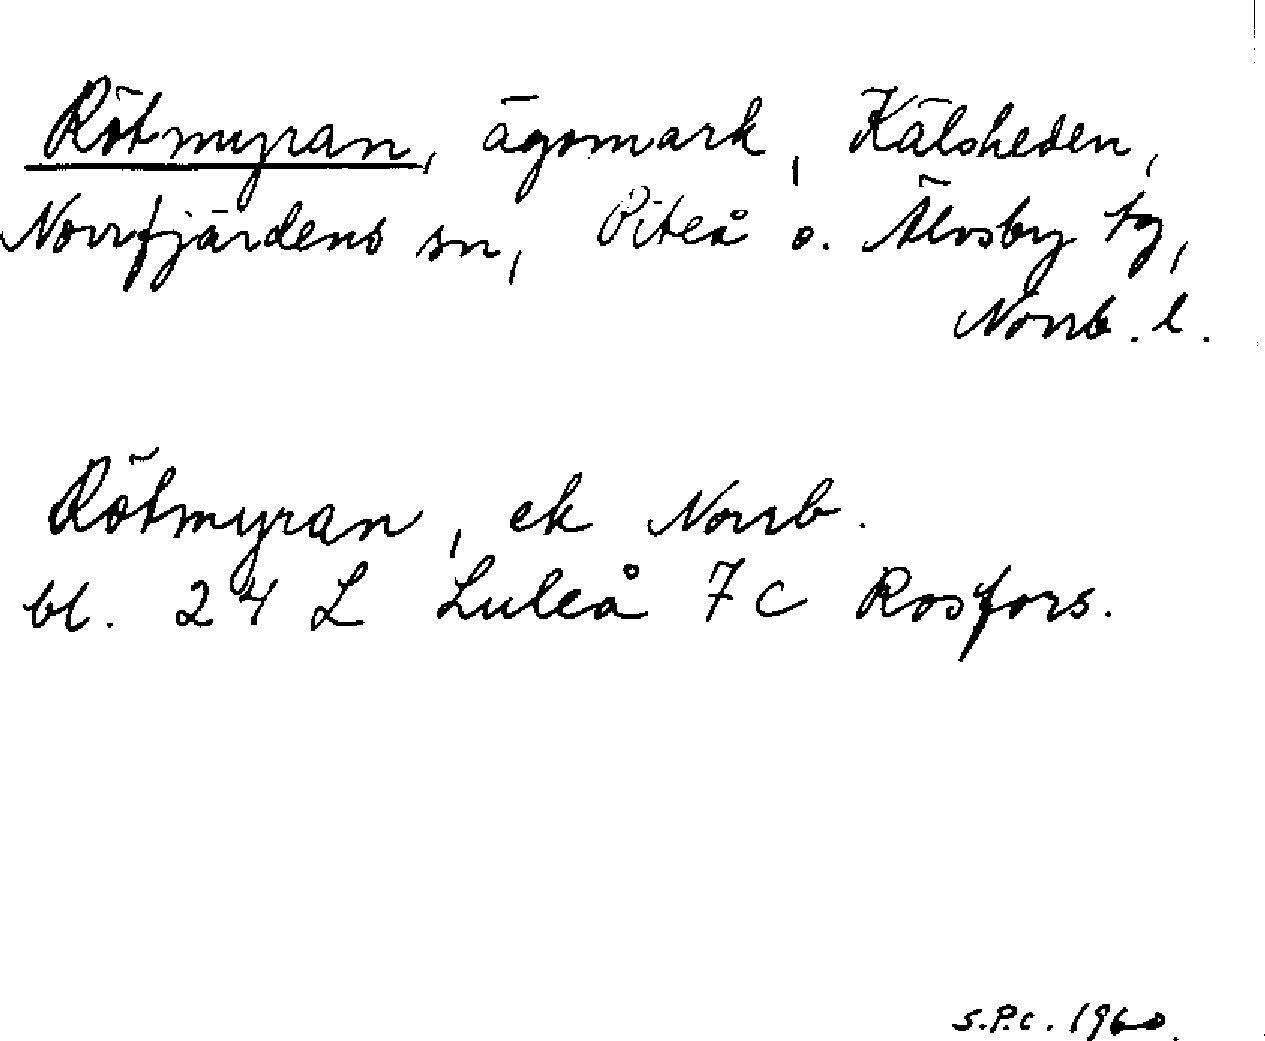 Rötmyran, ägomark, Kälsheden,
Norrfjärdens sn, Piteå o. Älvsby tg,
Norrb. l.
Rötmyran, ek Norrb.
bl. 24 L Luleå 7 c Rosfors.
S.P.c. 1960.